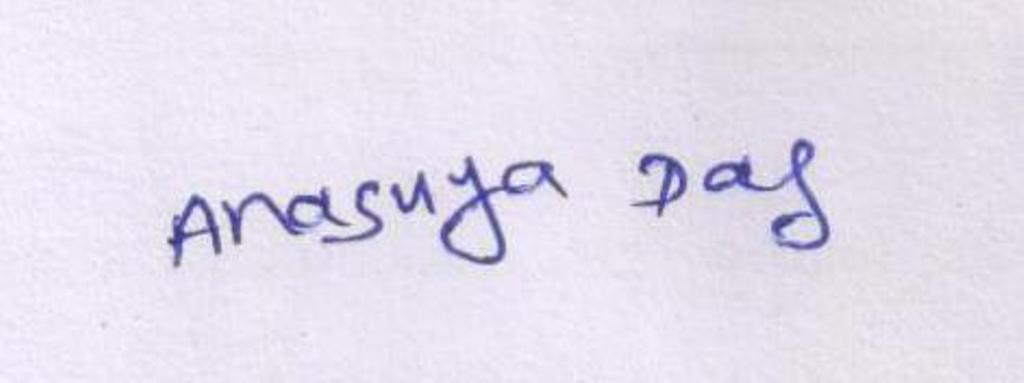 Anasuya Das